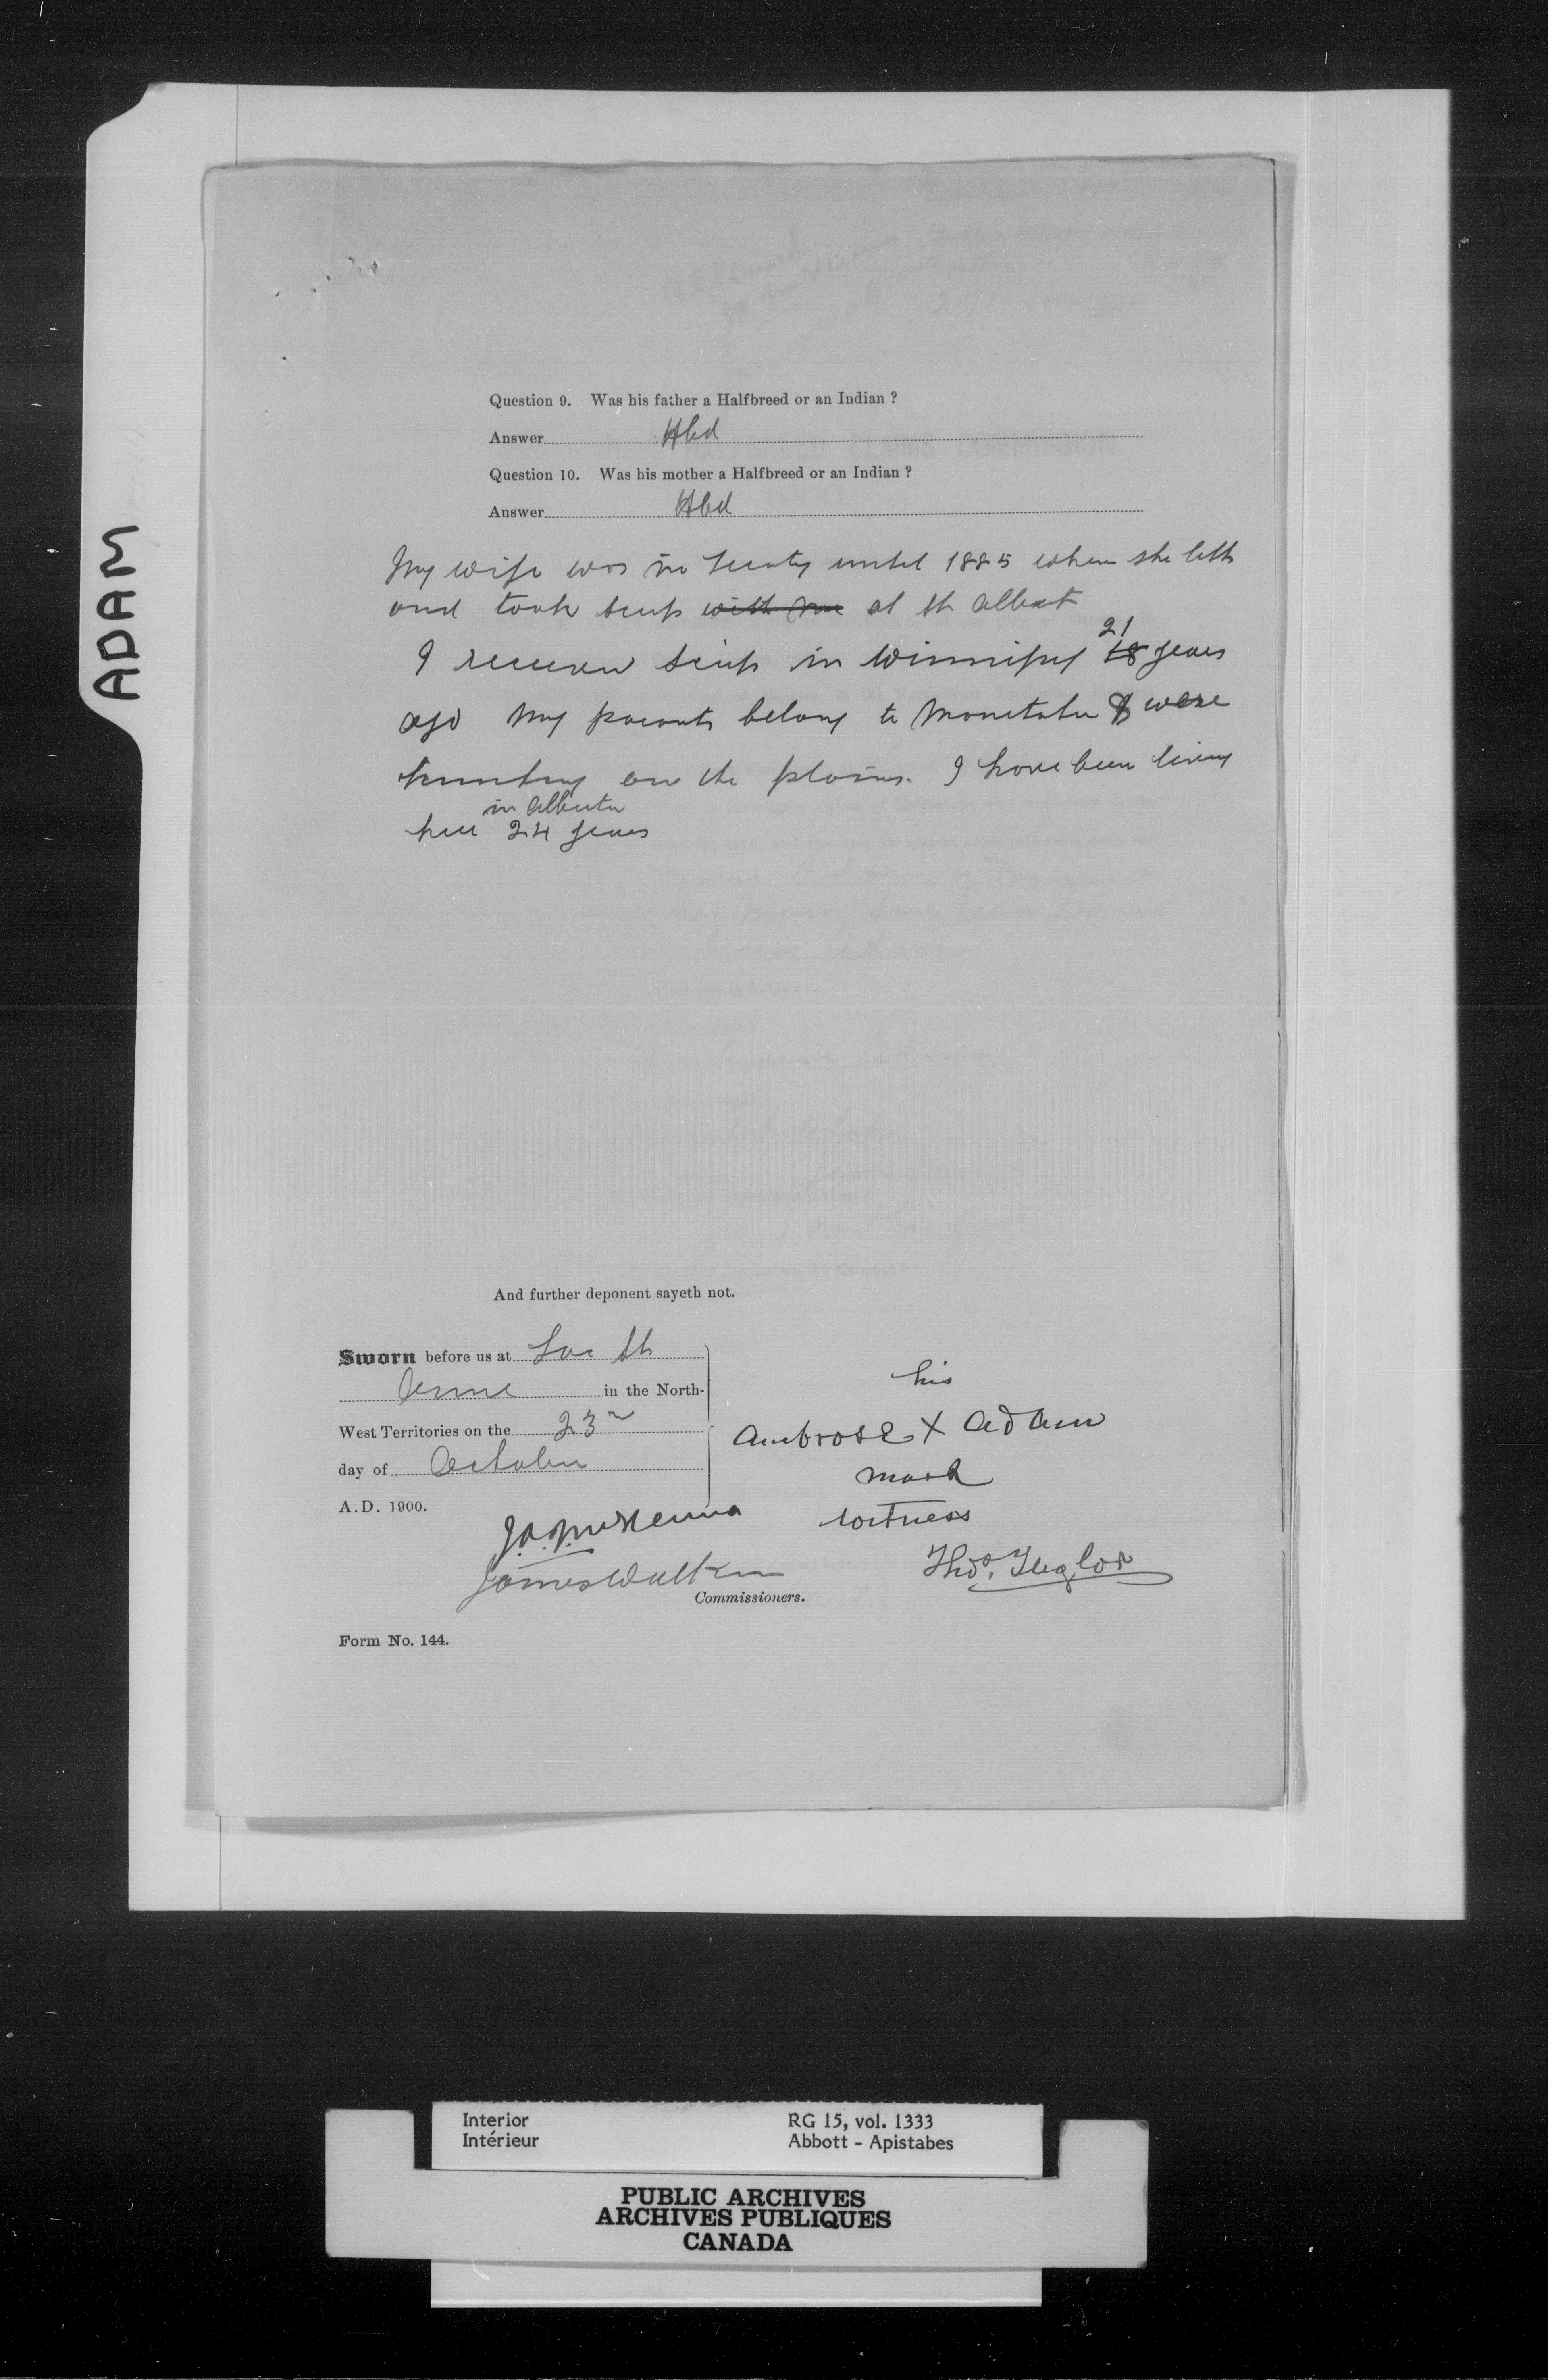 ADAM
Question 9. Was his father a Halfbreed or an Indian ?
Answer Hbd
Question 10. Was his mother a Halfbreed or an Indian ?
Answer Hbd
My wife was in treaty until 1885 when she left
and took scrip with me at St Albert
21
I receive scrip in Winnipeg 18 years
ago My parents belong to Manitoba & were
hunting on the plains. I have been living
in Alberta
here 24 years
And further deponent sayeth not.
Sworn before us at Lac St
Anne in the North-
West Territories on the 23
day of October
A.D. 1900.
his
Ambrose X Adam
mark
witness
J.A. McKenna
James Walker
Commissioners.
Form No. 144.
Interior RG 15, vol. 1333
Intérieur Abbott - Apistabes
PUBLIC ARCHIVES
ARCHIVES PUBLIQUES
CANADA